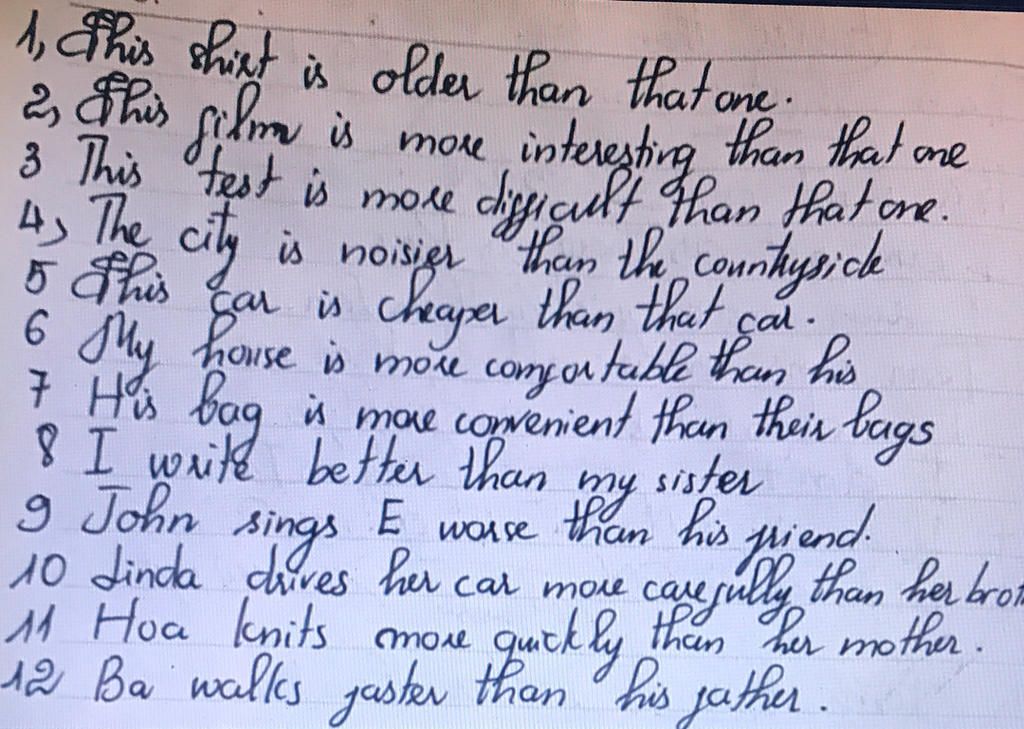 1, This shirt is older than that one.
2, This film is more interesting than that one
3 This test is more difficult than that one.
4, The city is noisier than the countryside
5 This car is cheaper than that car.
6 My house is more comfortable than his
7 His bag is more convenient than their bags
8 I write better than my sister
9 John sings E worse than his friend.
10 Linda drives her car more carefully than her brot
11 Hoa knits more quickly than her mother.
12 Ba walks faster than his father.